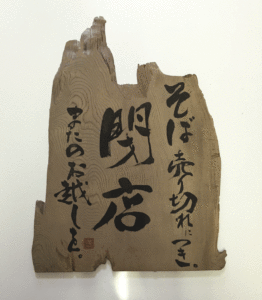 そば売り切れにつき、
閉店
またのお越しを。